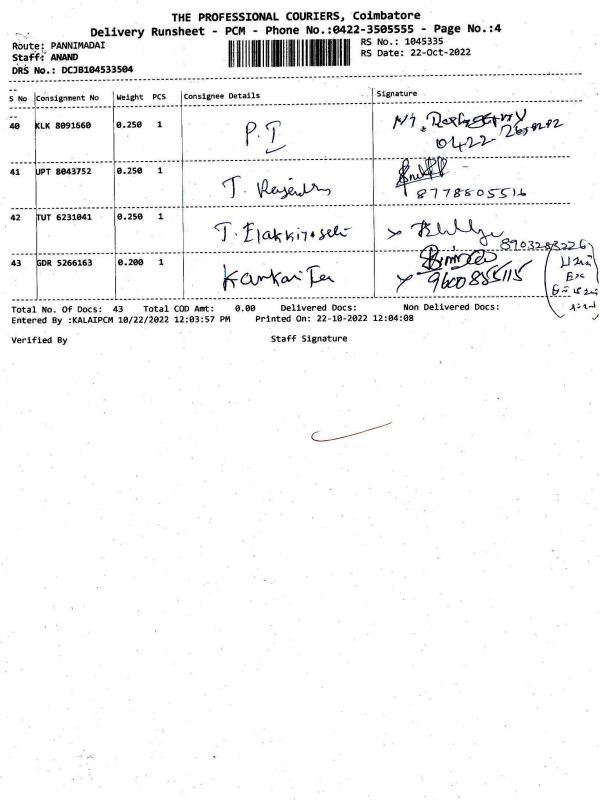 THE PROFESSIONAL COURIERS, Coimbatore
Delivery Runsheet - PCM - Phone No.:0422-3505555 - Page No.:4
Route: PANNIMADAI RS No.: 1045335
Staff: ANAND RS Date: 22-Oct-2022
DRS No.: DCJB104533504
S No Consignment No Weight PCS Consignee Details Signature
40 KLK 8091660 0.250 1 P.I
0422
41 UPT 8043752 0.250 1
T. Rajendra
8778805516
42 TUT 6231041 0.250 1
T. Elakkiya
8903288226
43 GDR 5266163 0.200 1
9600885115
Total No. Of Docs: 43 Total COD Amt: 0.00 Delivered Docs: Non Delivered Docs:
Entered By :KALAIPCM 10/22/2022 12:03:57 PM Printed On: 22-10-2022 12:04:08
Verified By Staff Signature